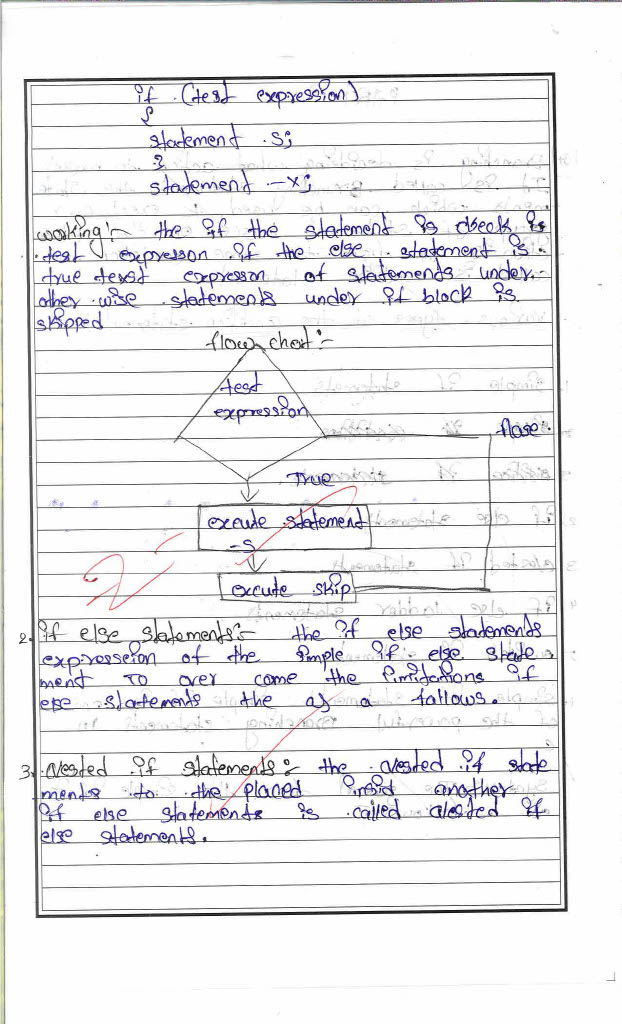 if (test expression)
{
statement .s;
}
statement -x;
working:- the if the statement is check is
test expresson .if the else. statement is.
true texst expresson of statements under.
other wise statements under if block is
skipped
flow chart:-
test
expression
flase.
True
execute statement
-s
execute skip
2. if else statements:- the if else statements
expression of the simple if else state
ment To over come the limitations if
else statements the as a follows.
3. Nested if statements: the Nested if state
ments to the placed insid another
if else statements is called Nested if
else statements.